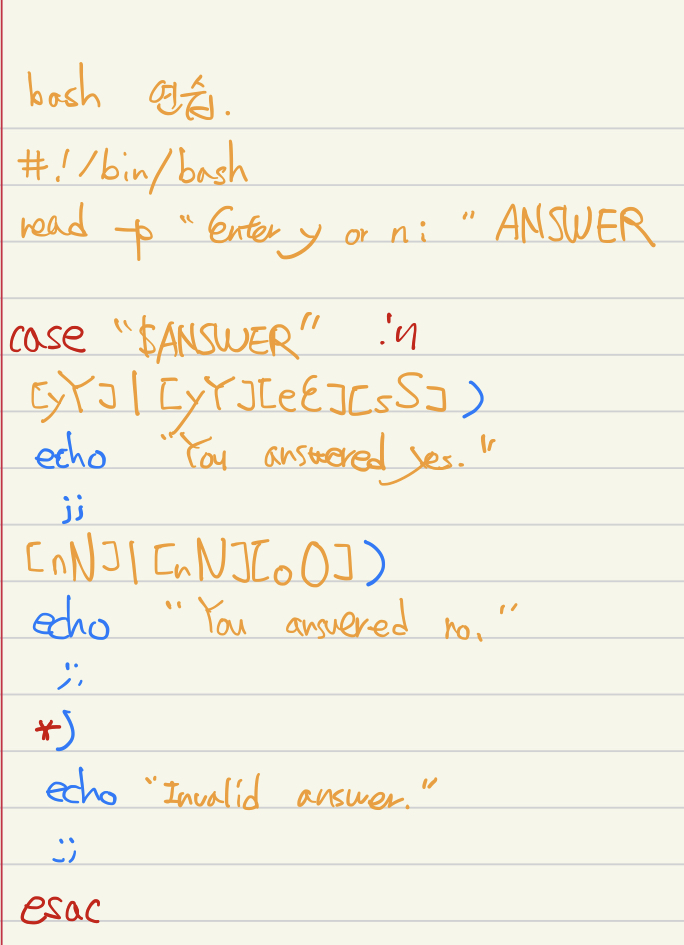 bash 연습.
#!/bin/bash
read -p "Enter y or n: " ANSWER
case "$ANSWER" in
[yY]|[yY][eE][sS])
echo "You answered yes."
;;
[nN]|[nN][oO])
echo "You answered no."
;;
*)
echo "Invalid answer."
;;
esac